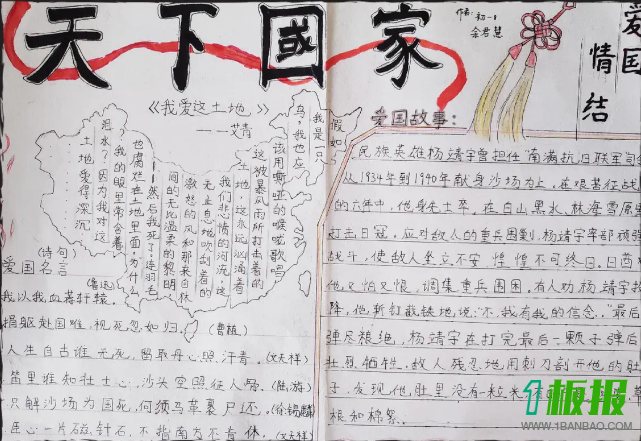 天下國家
作者:初一1
余君慧
爱国
情结
《我爱这土地》
——艾青
假如
我是一只
鸟,我也应
该用嘶哑的喉咙歌唱
这被暴风雨所打击着的
土地,这永远汹涌着
我们悲愤的河流,这
无止息地吹刮着的
激怒的风和那来自林
间的无比温柔的黎明
——然后我死了,连羽毛
也腐烂在土地里面。为什么
我的眼里常含着
泪水?因为我对这
土地爱得深沉
(诗句)
爱国名言
(鲁迅)
我以我血荐轩辕。
捐躯赴国难,视死忽如归。(曹植)
人生自古谁无死,留取丹心照汗青。(文天祥)
笛里谁知壮士心,沙头空照征人骨。(陆游)
只解沙场为国死,何须马革裹尸还。(徐锡麟)
臣心一片磁针石,不指南方不肯休。(文天祥)
爱国故事:
民族英雄杨靖宇曾担任南满抗日联军司令
从1934年到1940年献身沙场为止,在艰苦征战
的六年中,他身先士卒,在白山黑水、林海雪原
打击日寇,应对敌人的重兵围剿,杨靖宇率部顽强
战斗,使敌人坐立不安,惶惶不可终日。日酋
他又怕又恨,调集重兵围困。有人劝杨靖宇投
降,他斩钉截铁地说:“不,我有我的信念。”最后
弹尽粮绝,杨靖宇在打完最后一颗子弹后
壮烈牺牲。敌人残忍地用刺刀剖开他的肚
子,发现他肚里没有一粒米
根和棉絮。
1板报
WWW.1BANBAO.COM